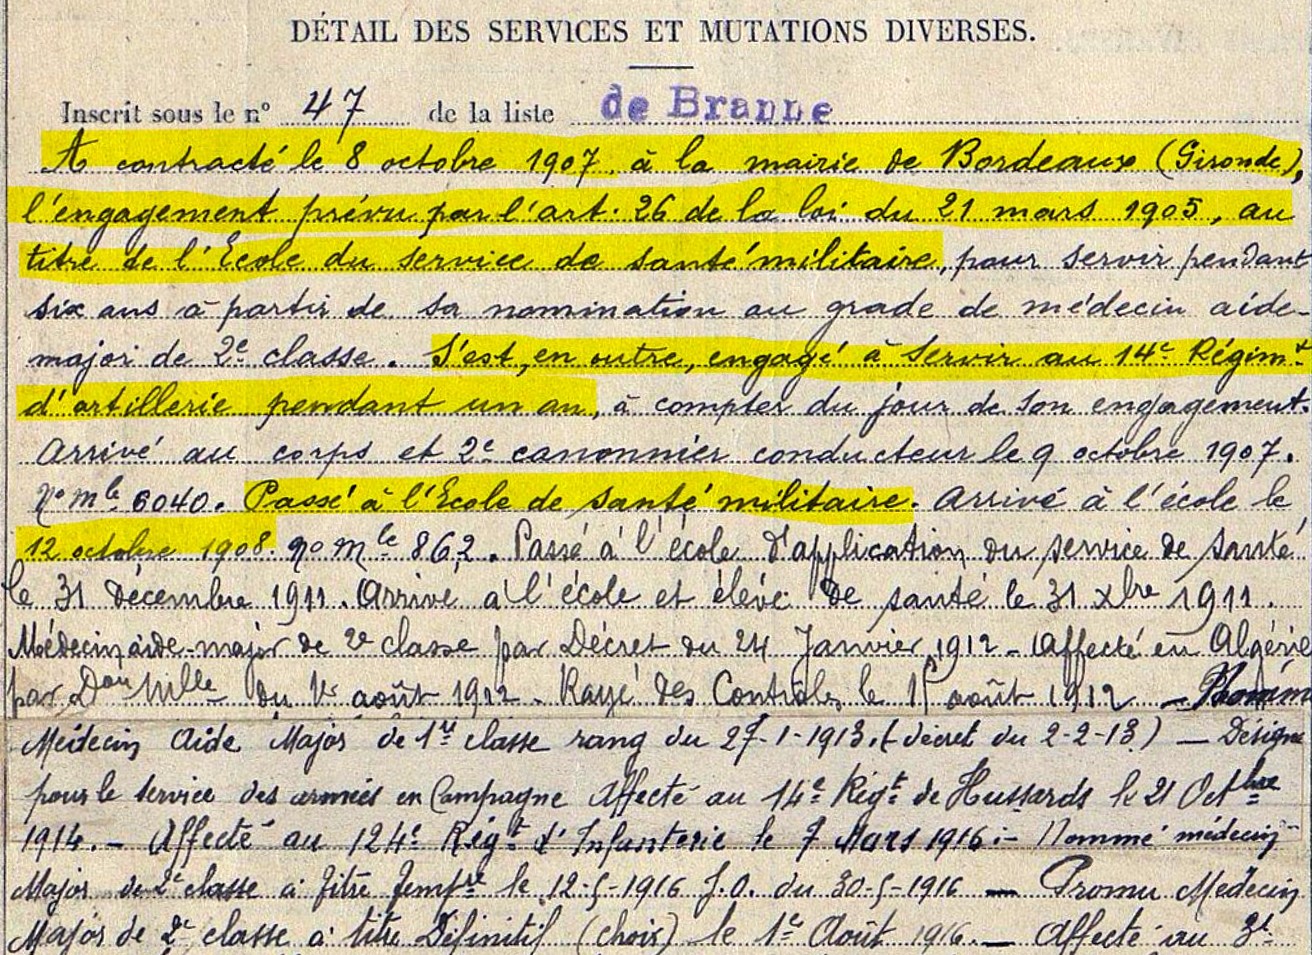 DÉTAIL DES SERVICES ET MUTATIONS DIVERSES.
Inscrit sous le n° 47 de la liste de Branne
A contracté le 8 octobre 1907, à la mairie de Bordeaux (Gironde),
l'engagement prévu par l'art. 26 de la loi du 21 mars 1905, au
titre de l'Ecole du service de santé militaire, pour servir pendant
six ans à partir de sa nomination au grade de médecin aide-
major de 2e classe. S'est, en outre, engagé à servir au 14e Régimt
d'artillerie pendant un an, à compter du jour de son engagement.
Arrivé au corps et 2e canonnier conducteur le 9 octobre 1907.
No mle 6040. Passé à l'Ecole de santé militaire. Arrivé à l'école le
12 octobre 1908. no mle 862. Passé à l'école d'application du service de santé
le 31 décembre 1911. Arrivé à l'école et élève de santé le 31 xbre 1911.
Médecin aide-major de 2e classe par Décret du 24 Janvier 1912 - Affecté en Algérie
par Don Mlle du 1er août 1912 - Rayé des Contrôles le 15 août 1912 -
Médecin Aide Major de 1re classe rang du 27-1-1913. (décret du 2-2-13) — Désigné
pour le service des armées en Campagne Affecté au 14e Régt de Hussards le 21 Octbre
1914. - Affecté au 124e Régt d'Infanterie le 7 Mars 1916 :- Nommé médecin
Major de 2e classe à titre tempre le 12-5-1916 J.O. du 30-5-1916 — Promu Médecin
Major de 2e classe à titre Définitif (choix) le 1er Août 1916. — Affecté au